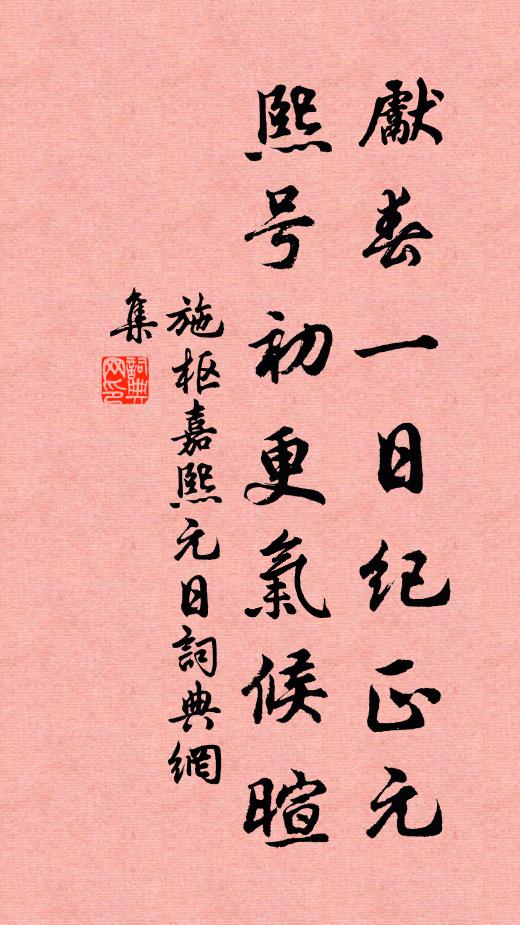 獻春一日纪正元
熙号初更氣候暄
施枢嘉熙元日詞典網
集
詞典网印